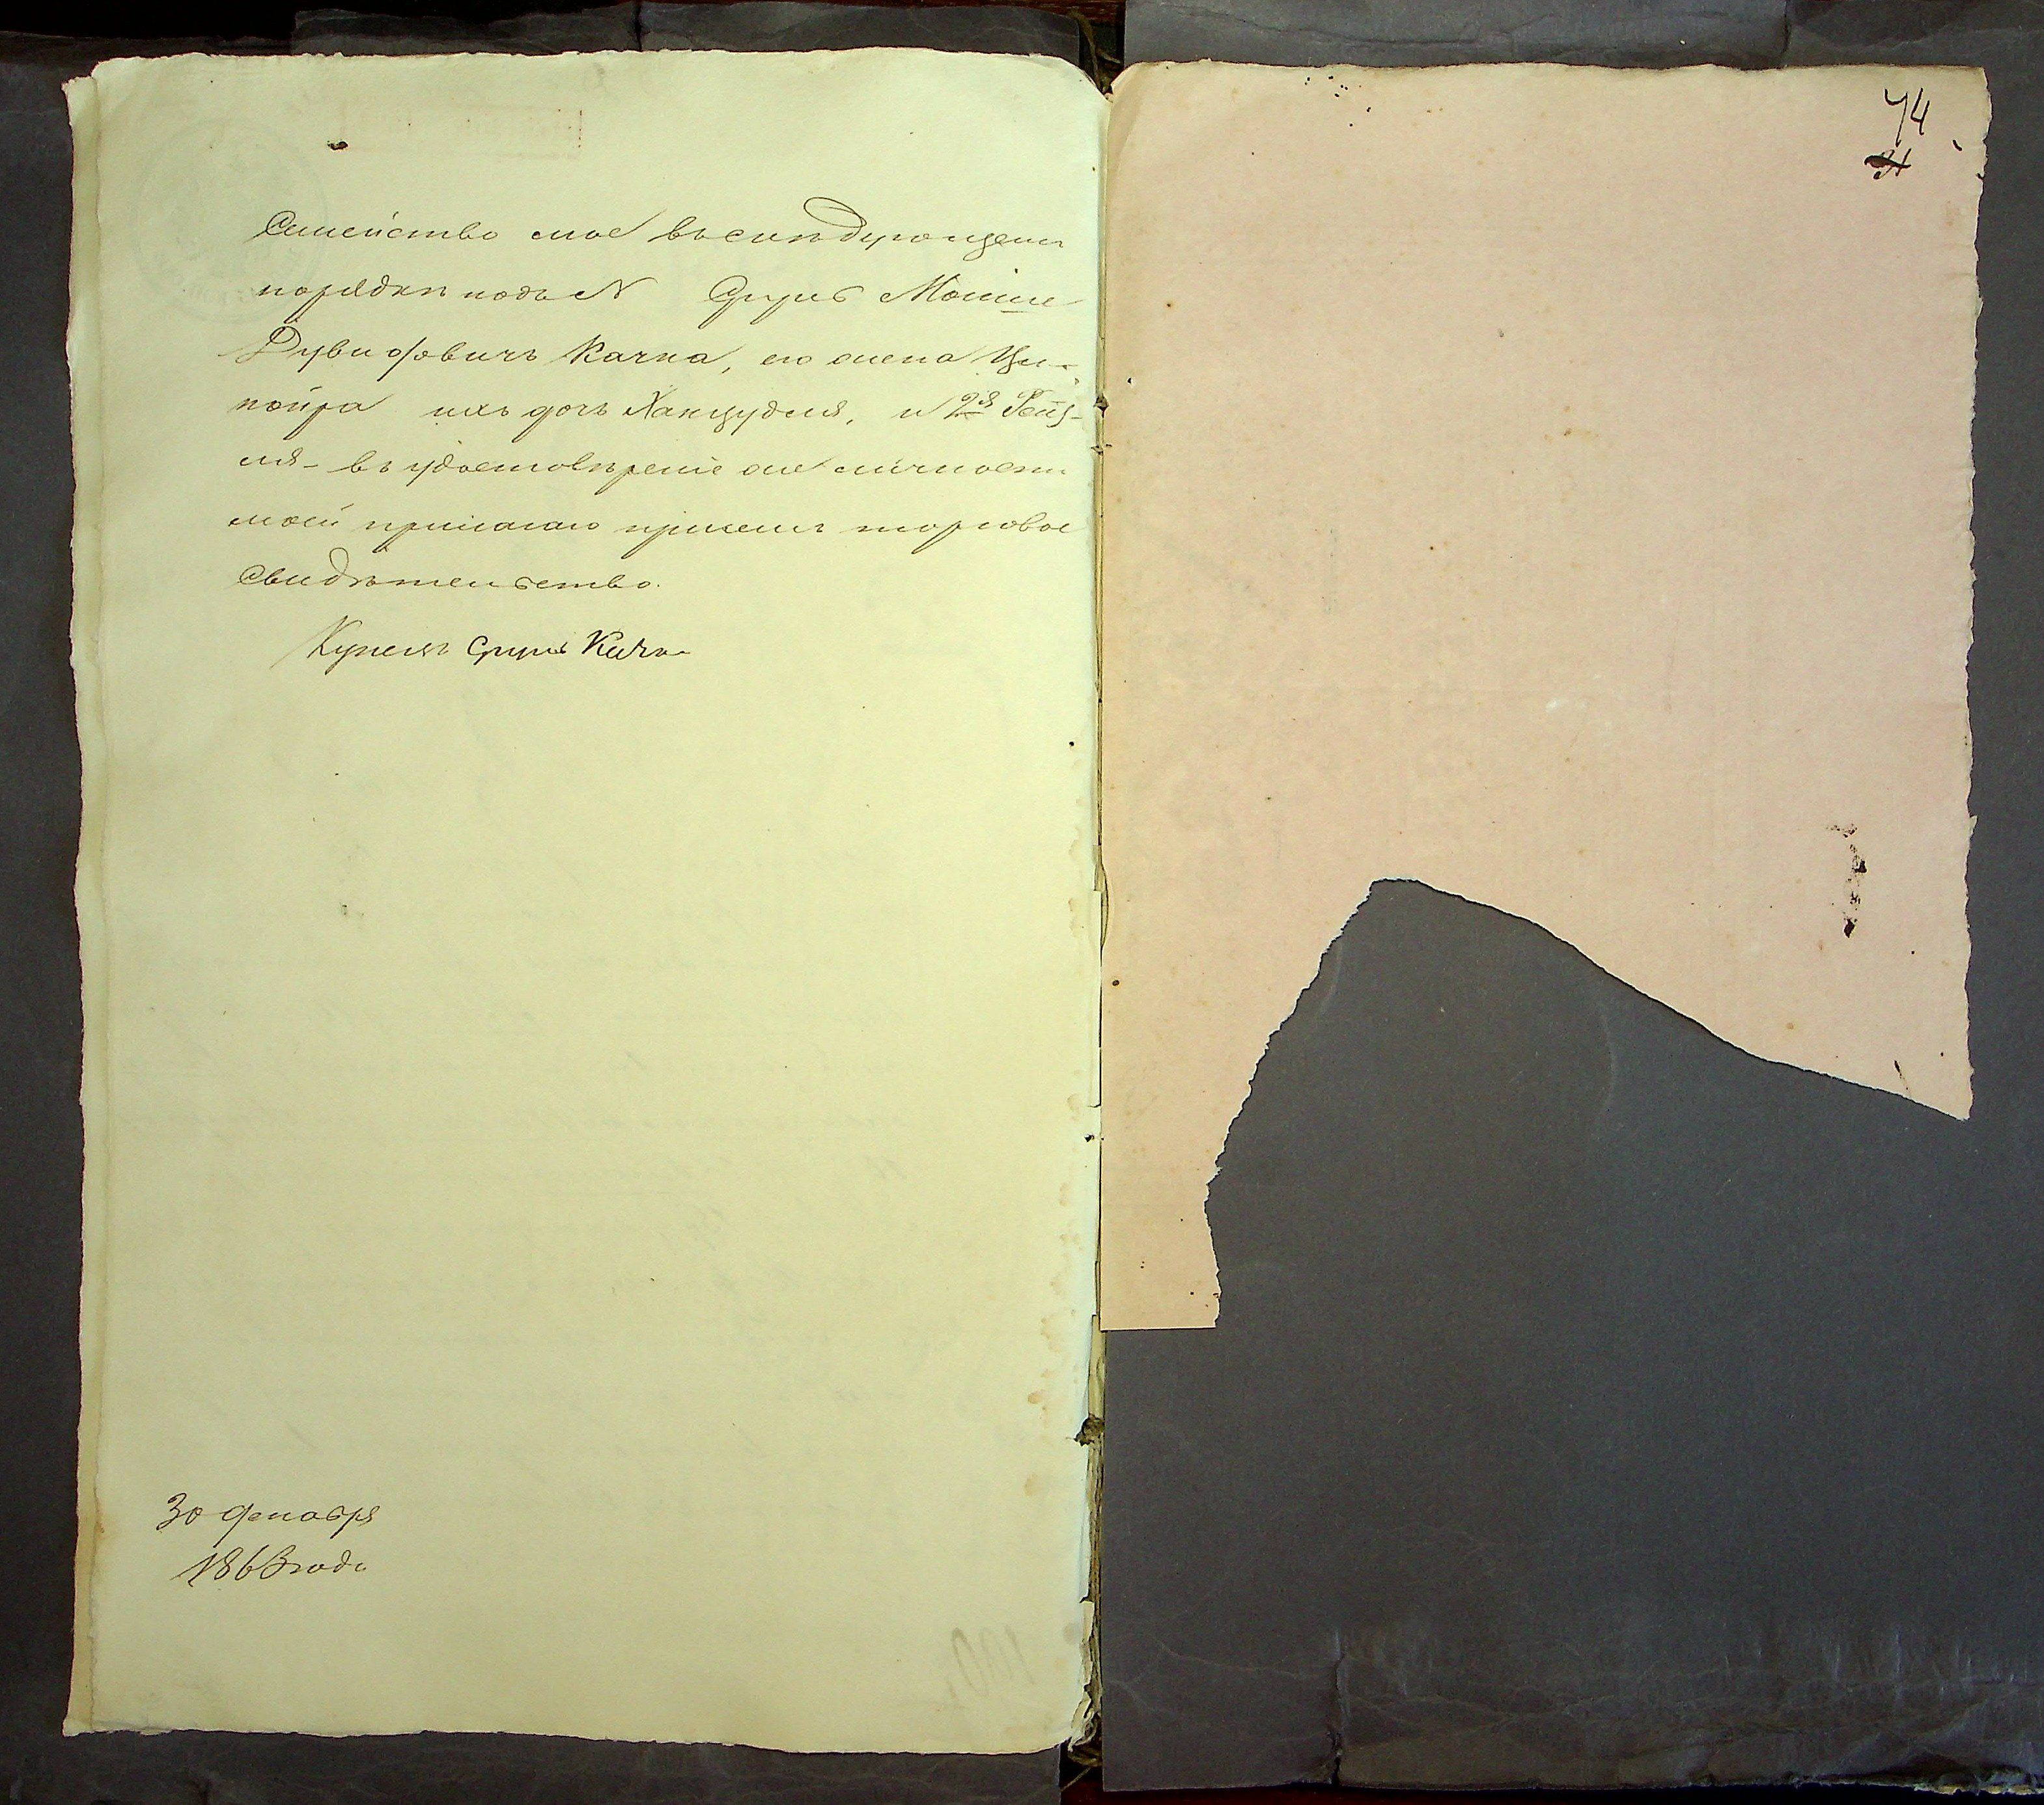 74
Семейство мое въ слѣдующемъ
порядкѣ подъ N Сруль Мошко
Дувидовичъ Качка, его жена Ци-
пойра ихъ дочь Ханцудля, и 2я Гейз-
ля – въ удостовѣреніе же личности
моей прилагаю присемъ торговое
Свидѣтельство.
Купецъ Сруль Качка
30 декабря
1863 года